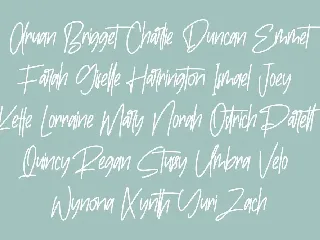 Alruan Brigget Charlie Duncan Emmet
Farrah Giselle Harrington Ismael Joey
Kette Lorraine Marry Norah Ostrich Parrett
Quincy Regan Stuey Umbra Velo
Wynona Xynth Yuri Zach